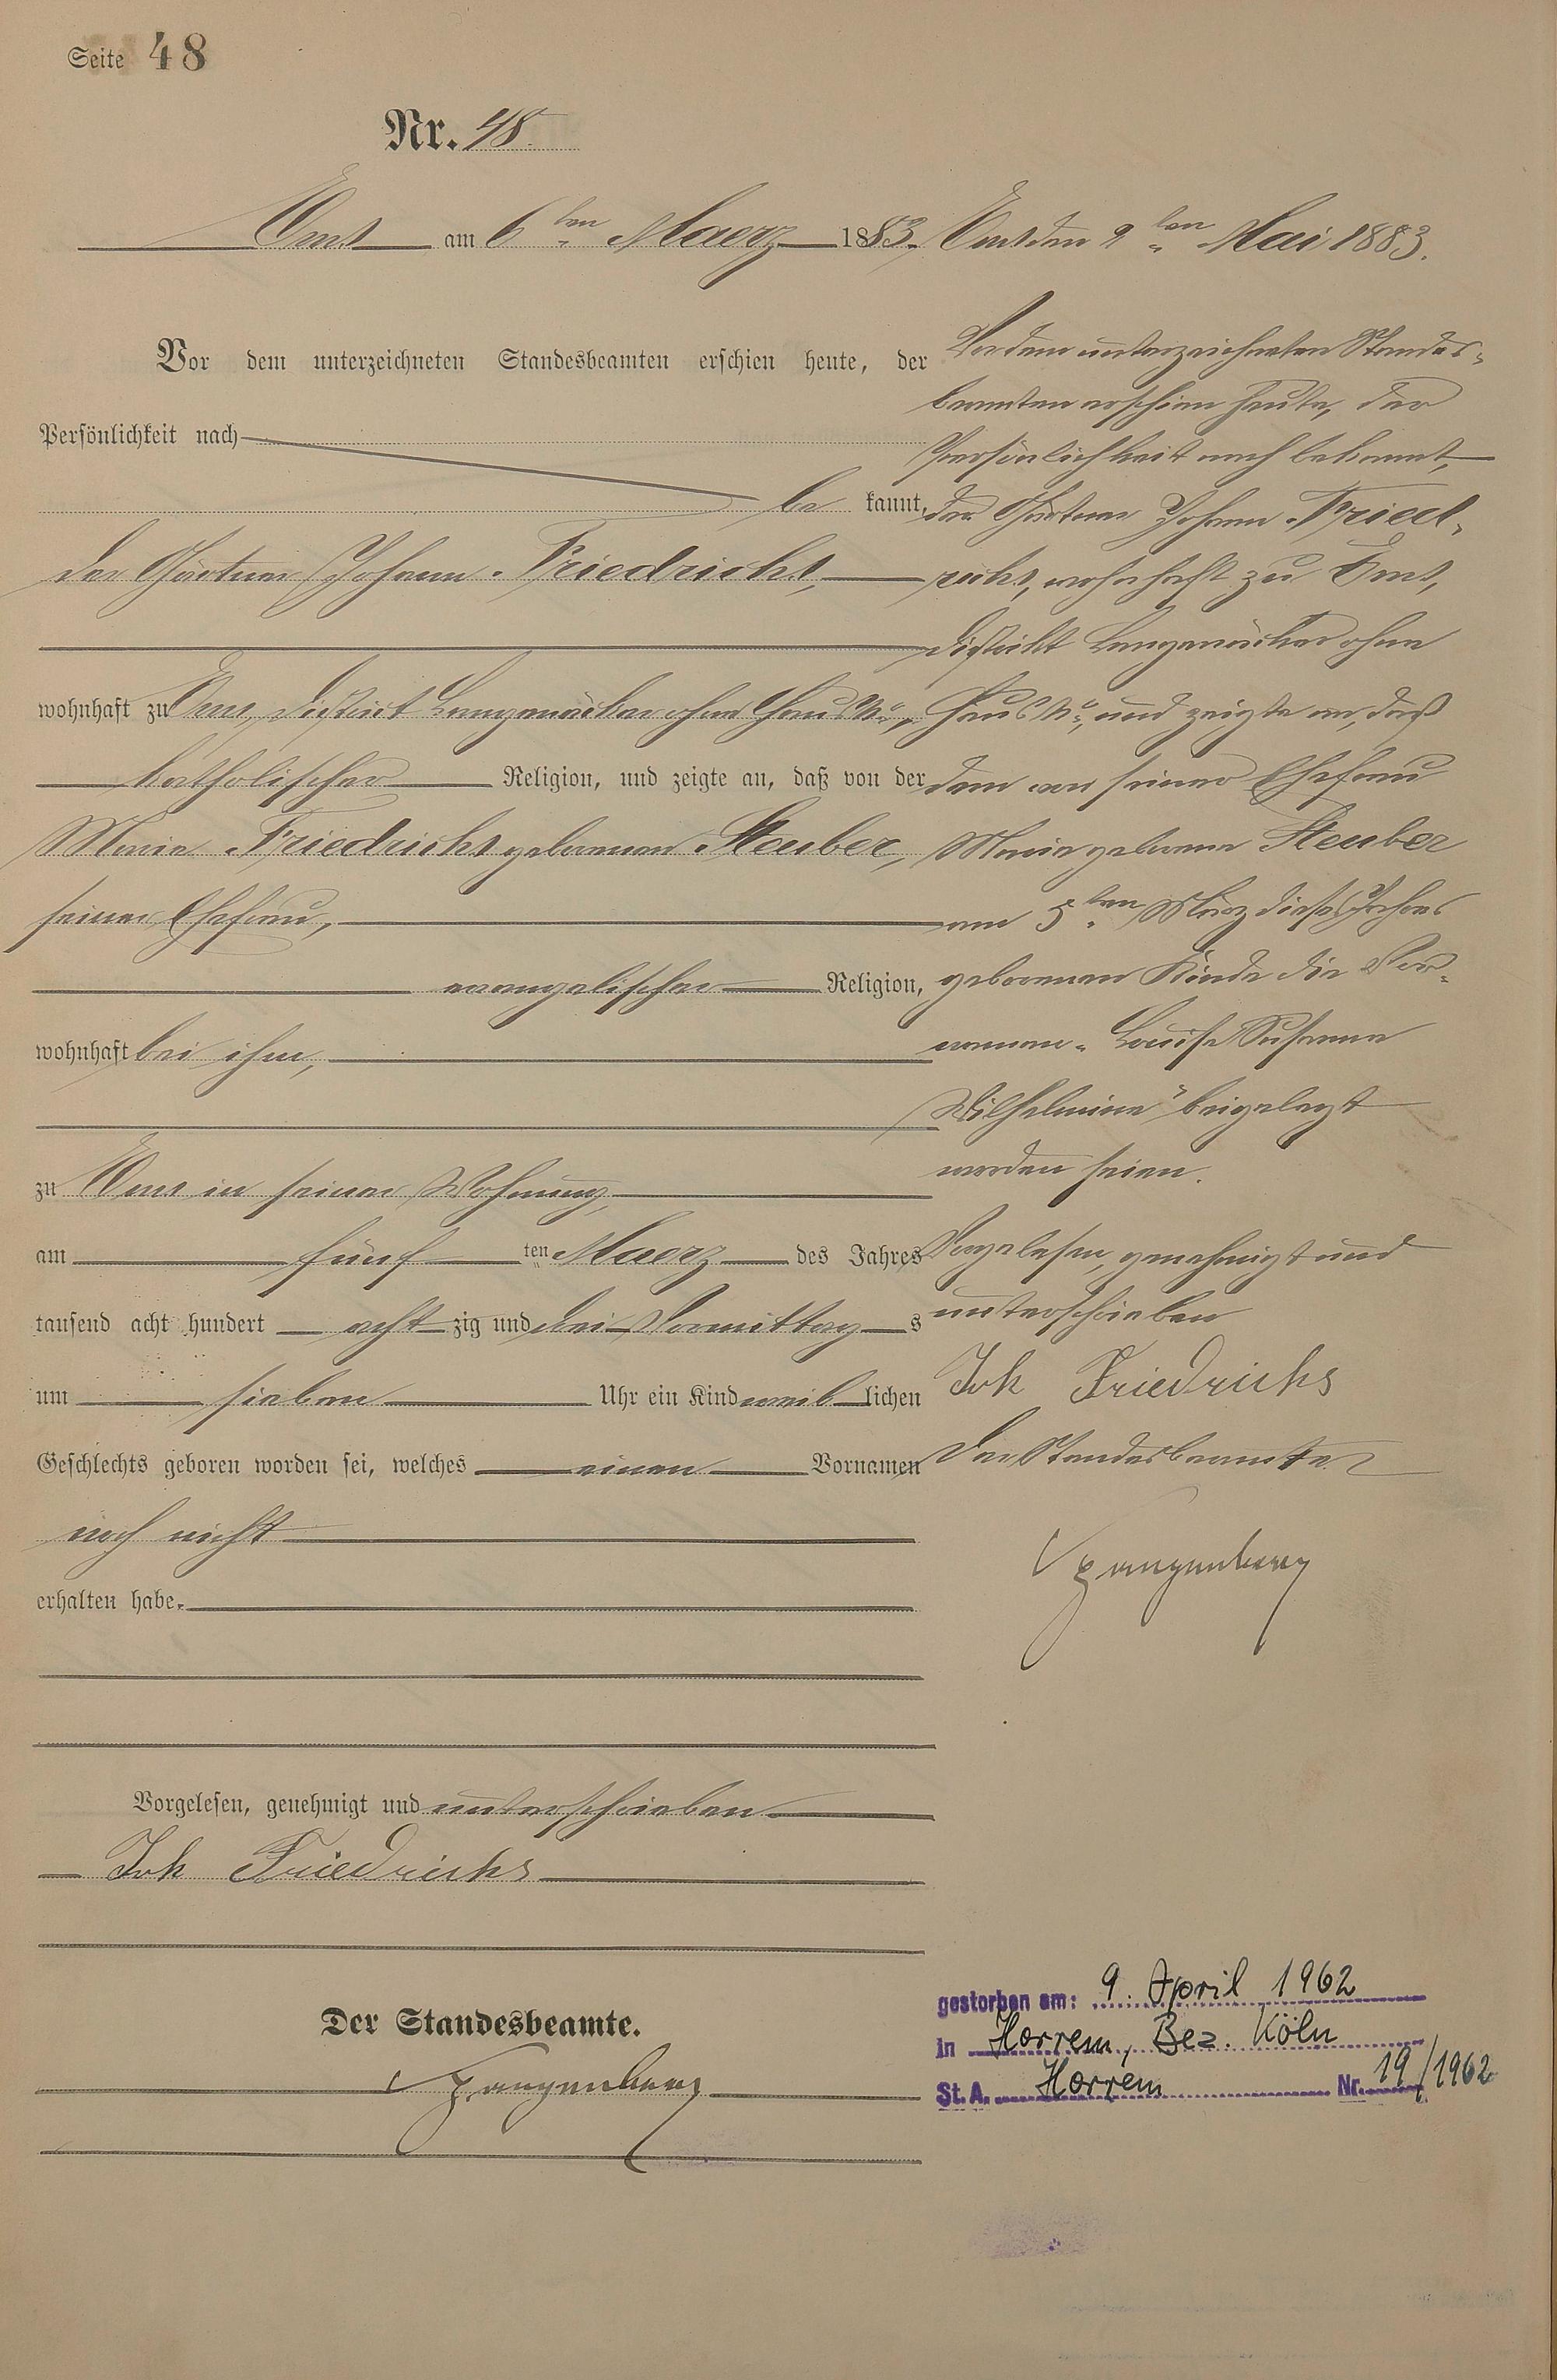 Seite 48
Nr. 48.
Ems am 6ten Maerz 1883.
Vor dem unterzeichneten Standesbeamten erschien heute, der
Persönlichkeit nach
be kannt,
der Gärtner Johann Friedrichs,
wohnhaft zu Ems, District Langenäcker ohne Haus No,
katholischer Religion, und zeigte an, daß von der
Maria Friedrichs geborenen Steuber,
seiner Ehefrau,
evangelischer Religion,
wohnhaft bei ihm,
zu Ems in seiner Wohnung,
am fünf ten Maerz des Jahres
tausend acht hundert acht zig und drei Vormittag s
um sieben Uhr ein Kind weib lichen
Geschlechts geboren worden sei, welches einen Vornamen
noch nicht
erhalten habe.
Vorgelesen, genehmigt und unterschrieben
Joh Friedrichs
Der Standesbeamte.
Ems den 9ten Mai 1883.
Vor dem unterzeichneten Standes-
beamten erschien heute, der
Persönlichkeit nach bekannt,
der Gärtner Johann Fried-
richs, wohnhaft zu Ems,
District Langenäcker ohne
Haus No, und zeigte an, daß
dem von seiner Ehefrau
Maria geborene Steuber
am 5ten März dieses Jahres
geborenen Kinde die Vor-
namen "Louise Susanna
Wilhelmine" beigelegt
worden seien.
Vorgelesen, genehmigt und
unterschrieben
Joh Friedrichs
Der Standesbeamte
gestorben am: 9. April 1962
in Horrem, Bez. Köln
St. A. Horrem Nr. 19/1962